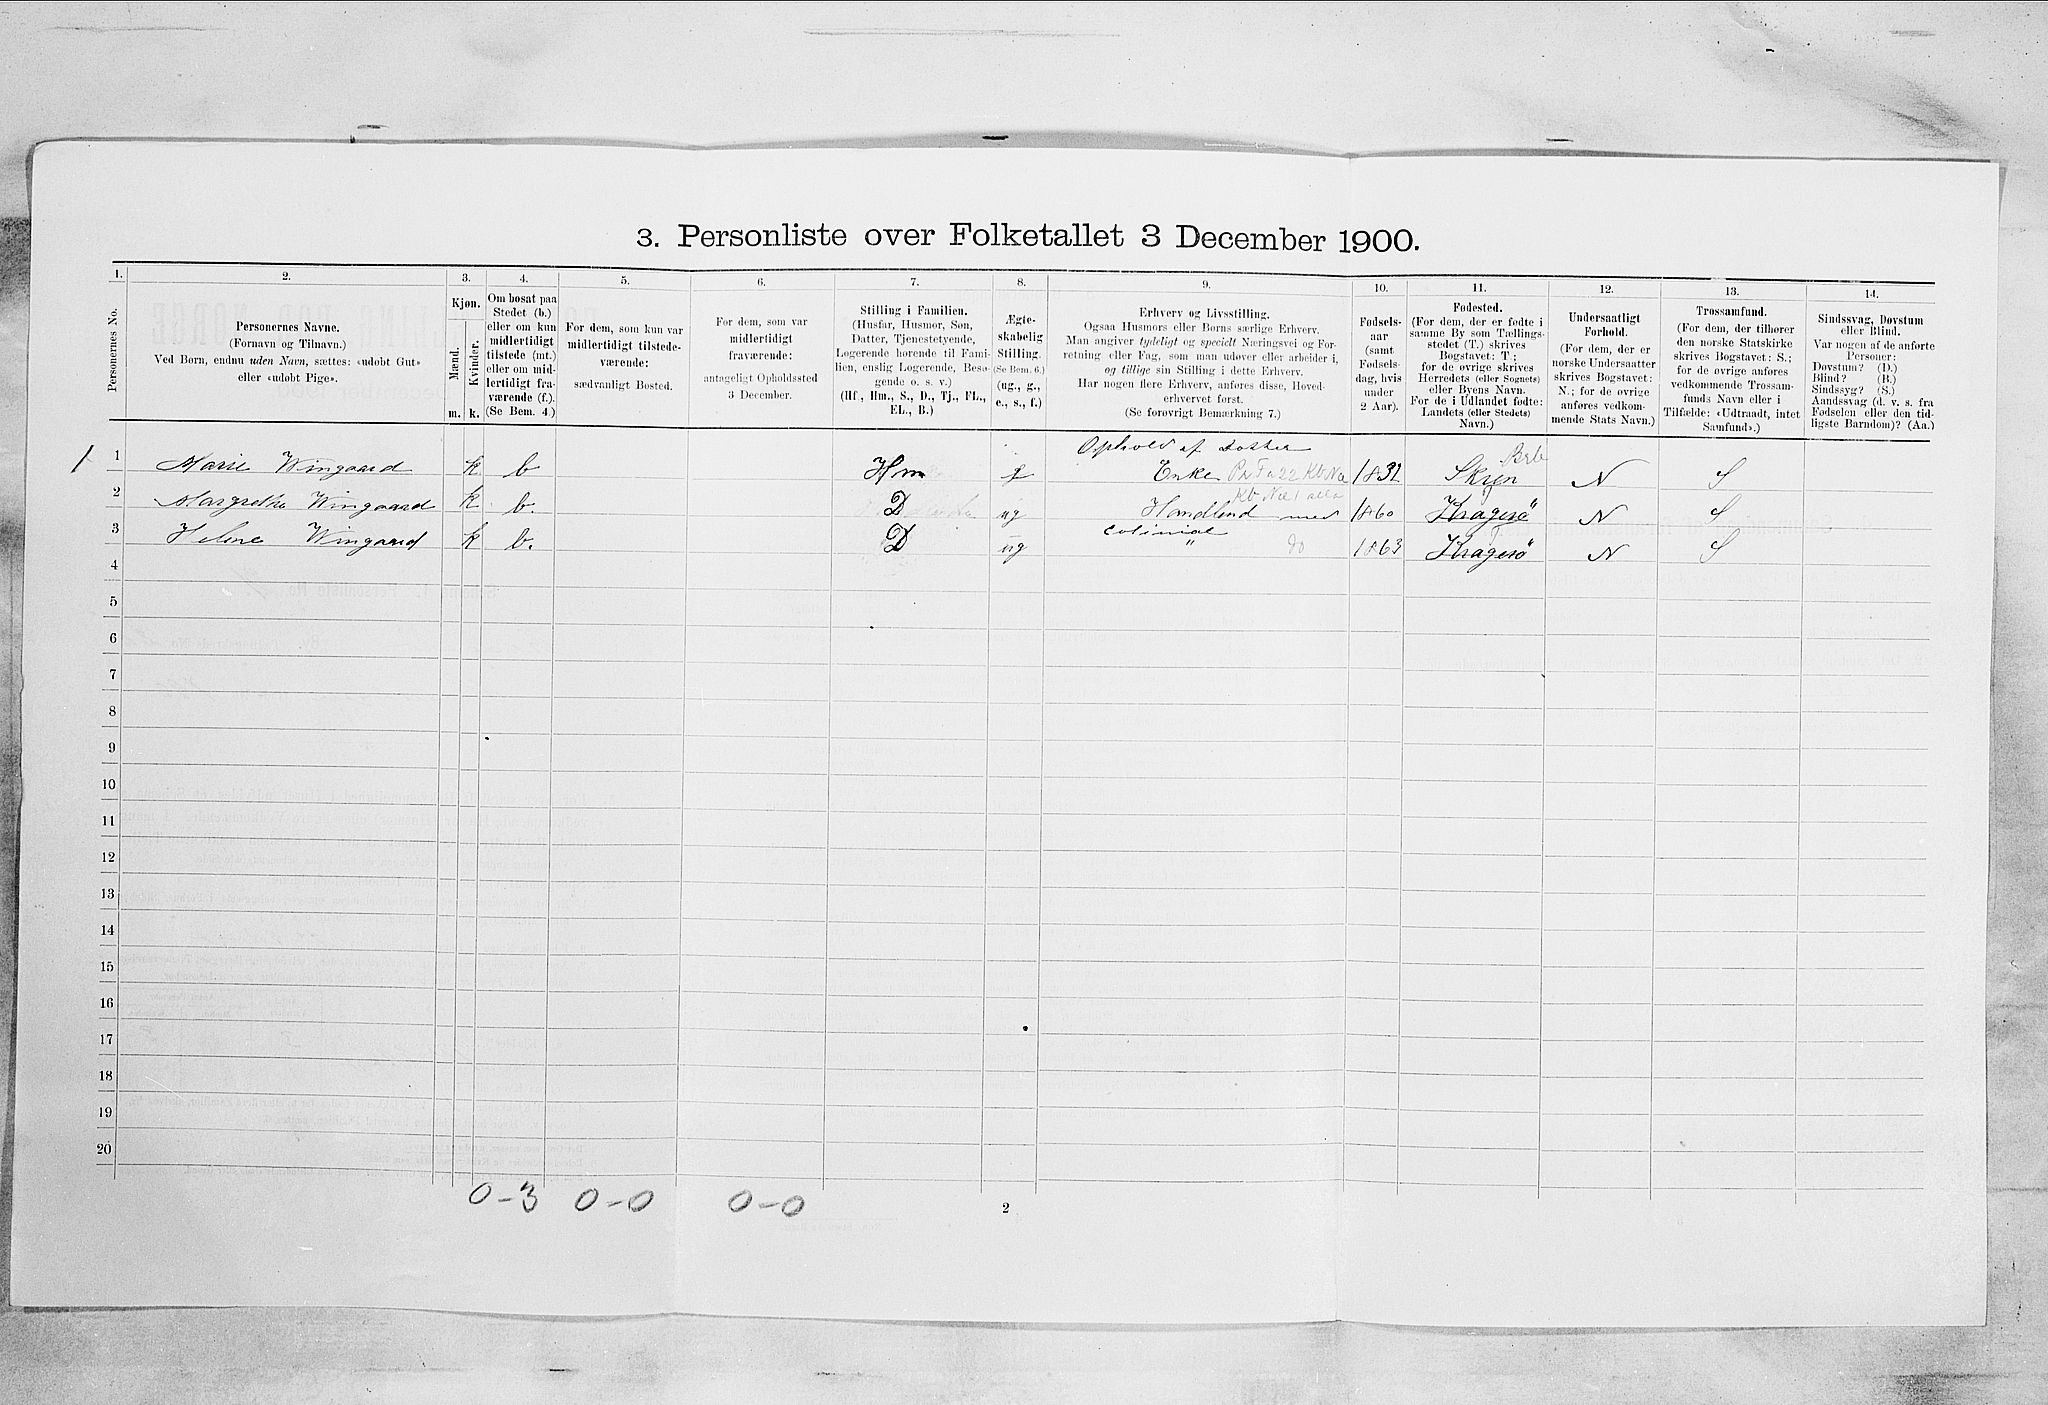 3. Personliste over Folketallet 3 December 1900.
1. 2. 3. 4. 5. 6. 7. 8. 9. 10. 11. 12. 13. 14.
Personernes No.
Personernes Navne.
(Fornavn og Tilnavn.)
Ved Børn, endnu uden Navn, sættes: «udøbt Gut»
eller «udøbt Pige».
Kjøn.
Mænd.
Kvinder.
m. k.
Om bosat paa
Stedet (b.)
eller om kun
midlertidigt
tilstede (mt.)
eller om mid-
lertidigt fra-
værende (f.).
(Se Bem. 4.)
For dem, som kun var
midlertidigt tilstede-
værende:
sædvanligt Bosted.
For dem, som var
midlertidigt
fraværende:
antageligt Opholdssted
3 December.
Stilling i Familien.
(Husfar, Husmor, Søn,
Datter, Tjenestetyende,
Logerende hørende til Fami-
lien, enslig Logerende, Besø-
gende o. s. v.)
(Hf., Hm., S., D., Tj., FL.,
EL., B.)
Ægte-
skabelig
Stilling.
(Se Bem. 6.)
(ug., g.,
e., s., f.)
Erhverv og Livsstilling.
Ogsaa Husmors eller Børns særlige Erhverv.
Man angiver tydeligt og specielt Næringsvei og For-
retning eller Fag, som man udøver eller arbeider i,
og tillige sin Stilling i dette Erhverv.
Har nogen flere Erhverv, anføres disse, Hoved-
erhvervet først.
(Se forøvrigt Bemærkning 7.)
Fødsels-
aar
(samt
Fødsels-
dag, hvis
under
2 Aar).
Fødested.
(For dem, der er fødte i
samme By som Tællings-
stedet (T.) skrives
Bogstavet: T.;
for de øvrige skrives
Herredets (eller Sognets)
eller Byens Navn.
For de i Udlandet fødte:
Landets (eller Stedets)
Navn.)
Undersaatligt
Forhold.
(For dem, der er
norske Undersaatter
skrives Bogstavet:
N.; for de øvrige
anføres vedkom-
mende Stats Navn.)
Trossamfund.
(For dem, der tilhører
den norske Statskirke
skrives Bogstavet: S.;
for de øvrige anføres
vedkommende Trossam-
funds Navn eller i
Tilfælde: «Udtraadt, intet
Samfund».)
Sindssvag, Døvstum
eller Blind.
Var nogen af de anførte
Personer:
Døvstum? (D.)
Blind? (B.)
Sindssyg? (S.)
Aandssvag (d. v. s. fra
Fødselen eller den tid-
ligste Barndom)? (Aa.)
Ophold af
1 1 Marie Wingaard k b Hm Enke 1832 Skien N S
2 Margrethe Wingaard k b. D ug Handlend med 1860 Kragerø N S
colinial
3 Helene Wingaard k b. D ug " do 1863 Kragerø N S
4
5
6
7
8
9
10
11
12
13
14
15
16
17
18
19
20
0-3 0-0 0-0
2